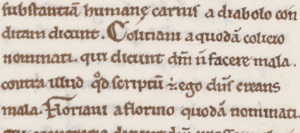 substantiā humane carnis a diabolo con
ditam dicunt. Colitiani a quodā colicio
nominati. qui dicunt dm̄ n̄ facere mala.
contra illud qd̄ scriptū ÷ ego dn̄s creans
mala. Floriani a florino quodā nominati